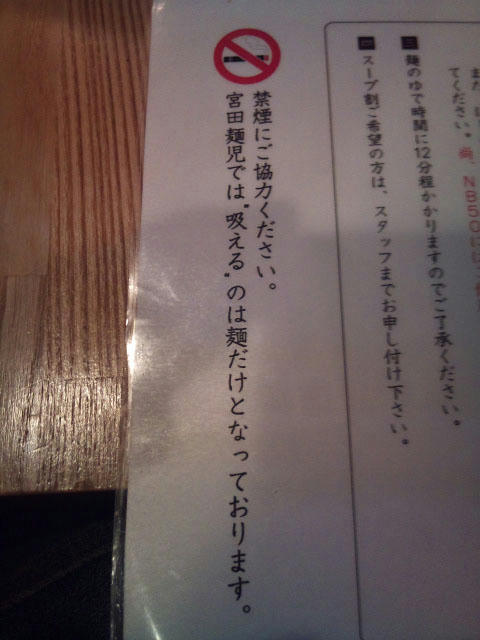 てください。尚、NB50
三 麺のゆで時間に12分程かかりますのでご了承ください。
スープ割ご希望の方は、スタッフまでお申し付け下さい。
禁煙にご協力ください。
宮田麺児では"吸える"のは麺だけとなっております。